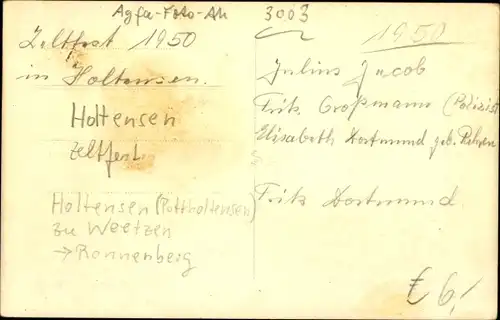 Agfa-Foto-AH
3003
Zeltfest 1950
in Holtensen.
Holtensen
Zeltfest
Holtensen (Pottholtensen)
zu Weetzen
→ Ronnenberg
1950
Julius Jacob
Fritz Großmann (Polizist
Elisabeth Dortmund geb.
Fritz Dortmund
€ 6,-